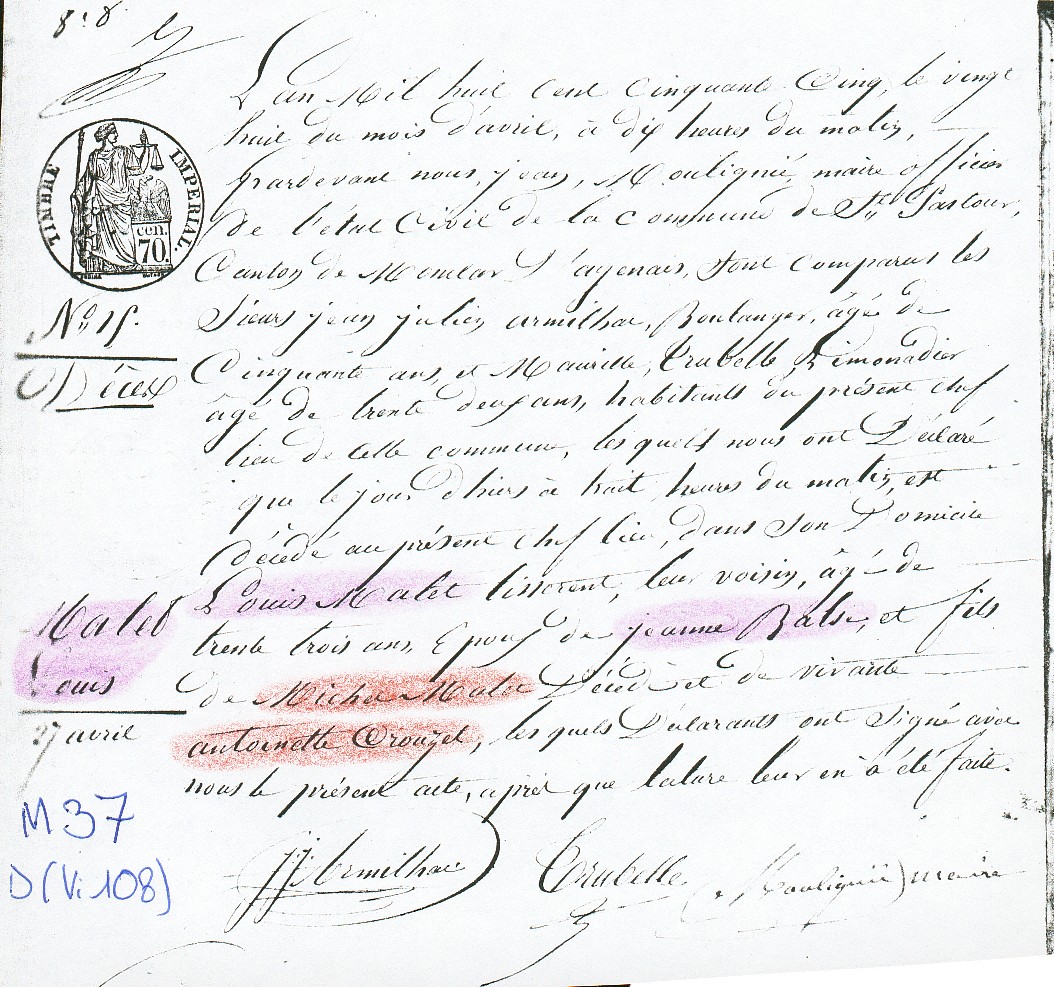 8:8
L'an Mil huit Cent Cinquante Cinq, le vingt
huit du mois d'avril, à dix heures du matin,
Pardevant nous, jean, Moulignié, maire officier
de l'état Civil de la Commune de St Pastour,
TIMBRE IMPERIAL.
cen. 70.
Canton de Monclar D'agenais, Sont Comparus les
No 15.
Sieurs jean julien armilhac, Boulanger, âgé de
Décex
Cinquante ans, et Maurille, Trubelle, Limonadier
âgé de trente deux ans, habitants du présent chef
lieu de cette commune, les quels nous ont Déclaré
que le jour d'hiers à huit heures du matin, est
Décédé au présent chef lieu, dans Son Domicile
Malet
Louis
Louis Malet tisserent, leur voisin, âgé de
trente trois ans, Epoux de jeanne Balse, et fils
de Michel Malet Décédé et de vivante
27 avril
antoinette Crouzel, les quels Déclarants ont Signé avec
nous le présent acte, après que lecture leur en a été faite.
M 37
D (Vi 108)
JJ Armilhac Trubelle Moulignié maire